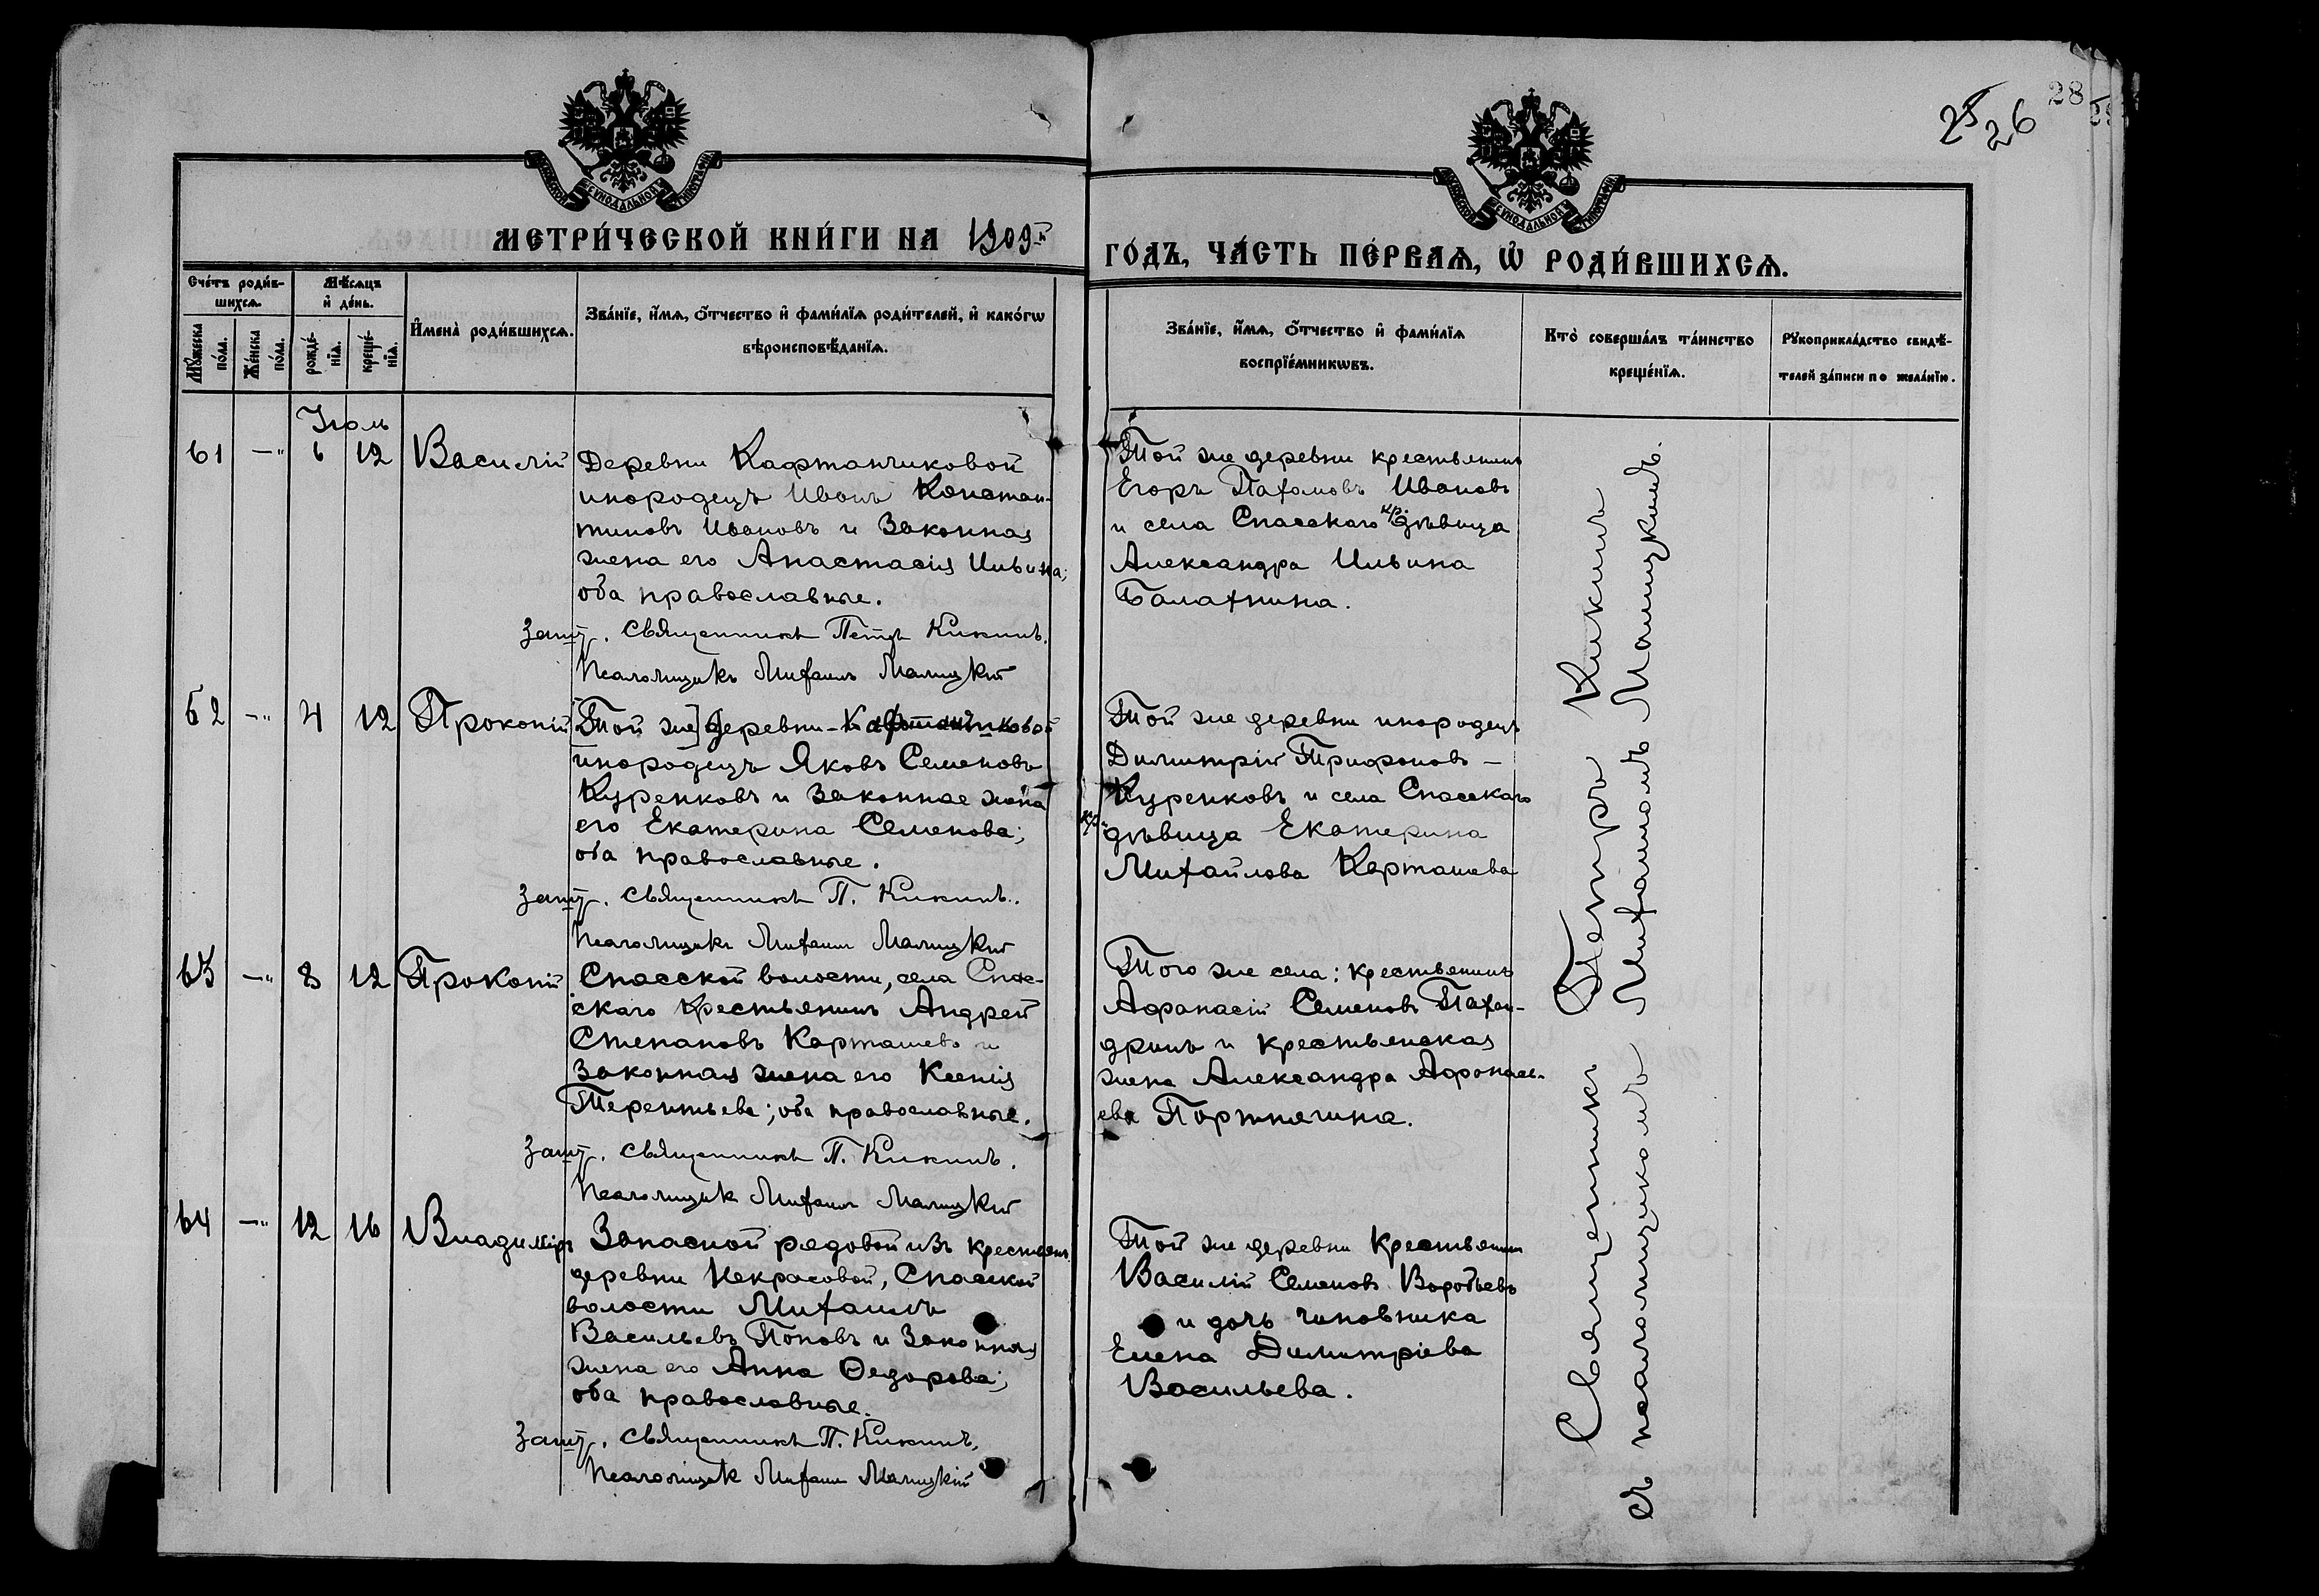 28
25 26
МЕТРИ́ЧЕСКОЙ КНИ́ГИ НА 1909-й
ГО́ДЪ, ЧА́СТЬ ПЕ́РВАѦ, Ѡ҆ РОДИ́ВШИХСѦ.
Сче́тъ роди́в-
шихсѧ.
Мѣ́сѧцъ
и҆ де́нь.
И҆мена̀ роди́вшихсѧ.
Зва́нїе, и҆́мѧ, ѻ҆́тчество и҆ фами́лїѧ роди́телей, и҆ како́гѡ
вѣроисповѣ́данїѧ.
Мꙋ́жеска
по́ла.
Же́нска
по́ла.
рожде́-
нїѧ.
креще́-
нїѧ.
Зва́нїе, и҆́мѧ, ѻ҆́тчество и҆ фами́лїѧ
воспрїе́мникѡвъ.
Кто̀ соверша́лъ та́инство
креще́нїѧ.
Рꙋкоприкла́дство свидѣ́-
телей за́писи по жела́нїю.
Іюль
61 —„ 6 12 Василій Деревни Кафтанчиковой
инородецъ Иванъ Констан-
тиновъ Ивановъ и законная
жена его Анастасія Ильина;
оба православные.
Зашт. Священникъ Петръ Кикинъ.
Псаломщикъ Михаилъ Малицкій
Той же деревни крестьянинъ
Егоръ Пахомовъ Ивановъ
и села Спасскаго кр. дѣвица
Александра Ильина
Балахнина.
62 —„ 4 12 Прокопій [Той же] деревни – Кафтанчиковой
инородецъ Яковъ Семеновъ
Куренковъ и законная жена
его Екатерина Семенова;
оба православные.
Зашт. Священникъ П. Кикинъ.
Псаломщикъ Михаилъ Малицкій
Той же деревни инородецъ
Димитрій Трифоновъ –
Куренковъ и села Спасскаго
кр. дѣвица Екатерина
Михайлова Карташева
63 —„ 8 12 Прокопій Спасской волости, села Спас-
скаго крестьянинъ Андрей
Степановъ Карташевъ и
законная жена его Ксенія
Терентьева; оба православные.
Зашт. Священникъ П. Кикинъ.
Псаломщикъ Михаилъ Малицкій
Того же села: крестьянинъ
Афанасій Семеновъ Пахан-
дринъ и крестьянская
жена Александра Афанась-
ева Портнягина.
64 —„ 12 16 Владиміръ Запасной рядовой изъ крестьянъ
деревни Некрасовой, Спасской
волости Михаилъ
Васильевъ Поповъ и законная
жена его Анна Ѳедорова;
оба православные.
Зашт. Священникъ П. Кикинъ.
Псаломщикъ Михаилъ Малицкій
Той же деревни крестьянинъ
Василій Семеновъ Воробьевъ
и дочь чиновника
Елена Димитріева
Васильева.
Священникъ Петръ Кикинъ
съ псаломщикомъ Михаиломъ Малицкимъ.